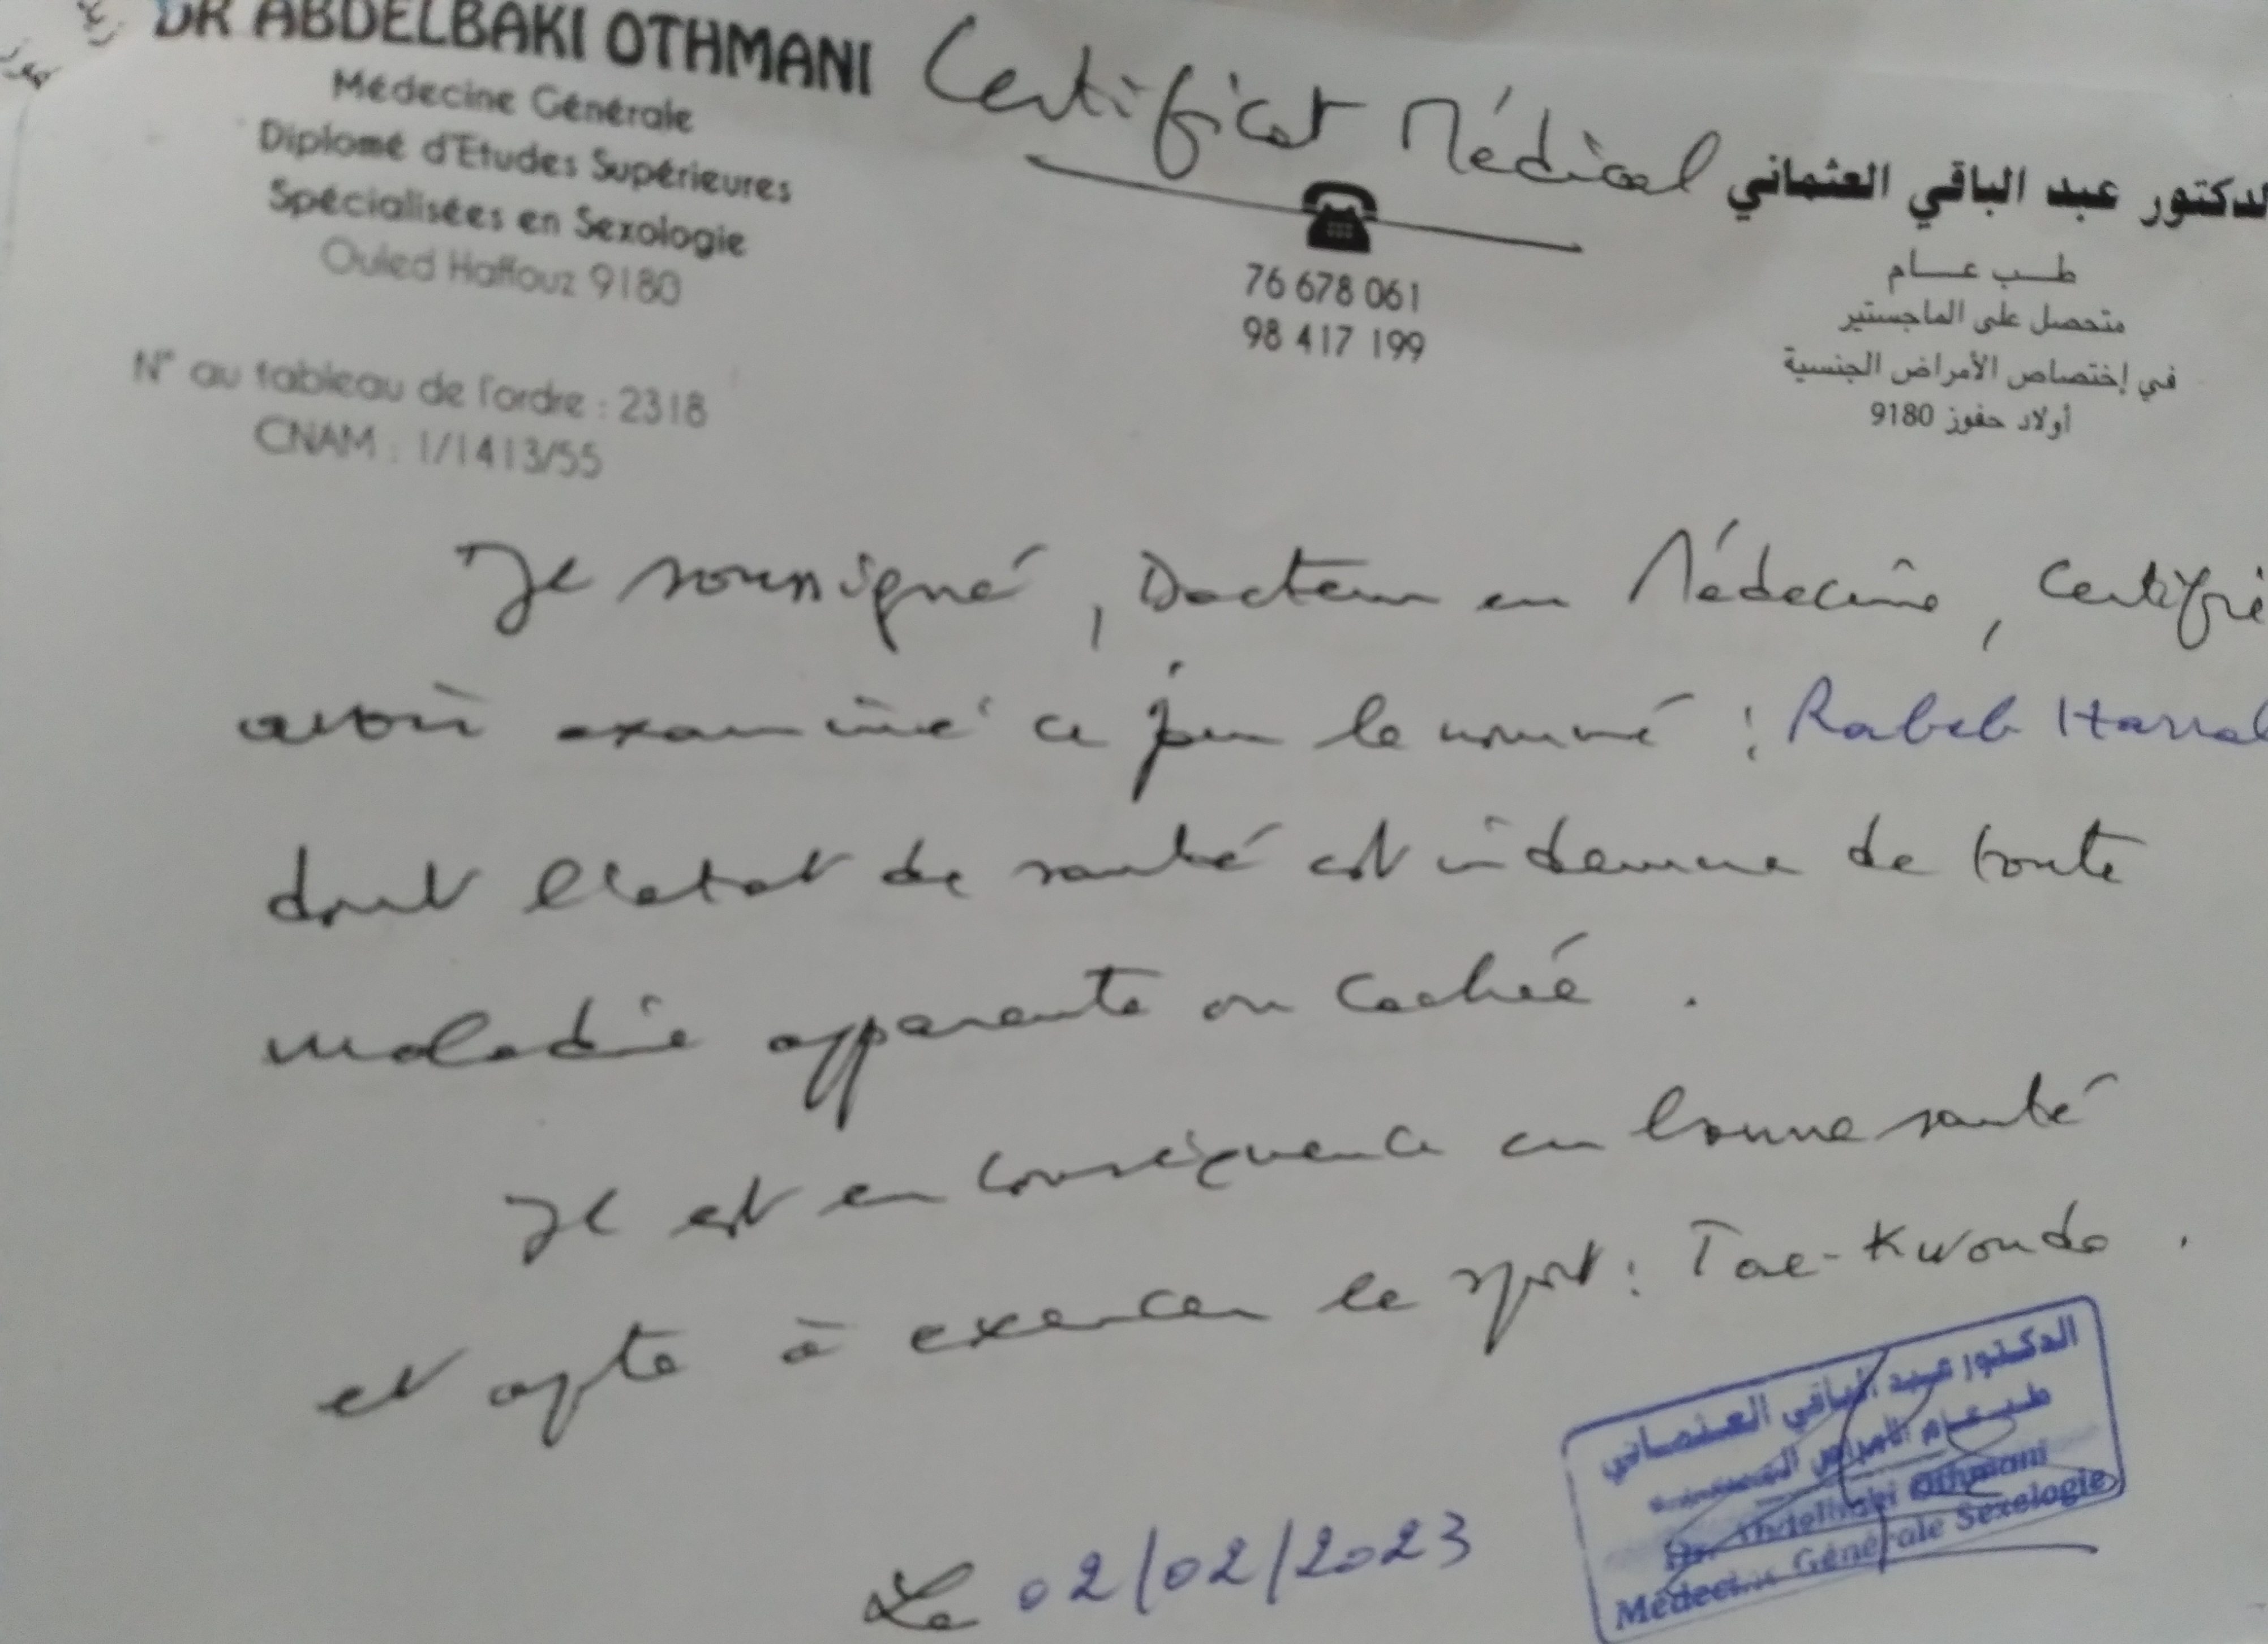 DR ABDELBAKI OTHMANI
Médecine Générale
Diplomé d'Etudes Supérieures
Spécialisées en Sexologie
Ouled Haffouz 9180
N° au tableau de l'ordre : 2318
CNAM : 1/1413/55
Certificat Médical
76 678 061
98 417 199
الدكتور عبد الباقي العثماني
طب عام
متحصل على الماجستير
في إختصاص الأمراض الجنسية
أولاد حفوز 9180
Je soussigné, Docteur en Médecine, Certifie
avoir examiné ce jour le nommé : Rabeb
dont l'etat de santé est indemne de toute
maladie apparente ou cachée .
Il est en conséquence en bonne santé
et apte à exercer le sport : Tae-Kwondo .
Le 02/02/2023
الدكتور عبد الباقي العثماني
طب عام
Dr. Abdelbaki Othmani
Médecine Générale Sexologie